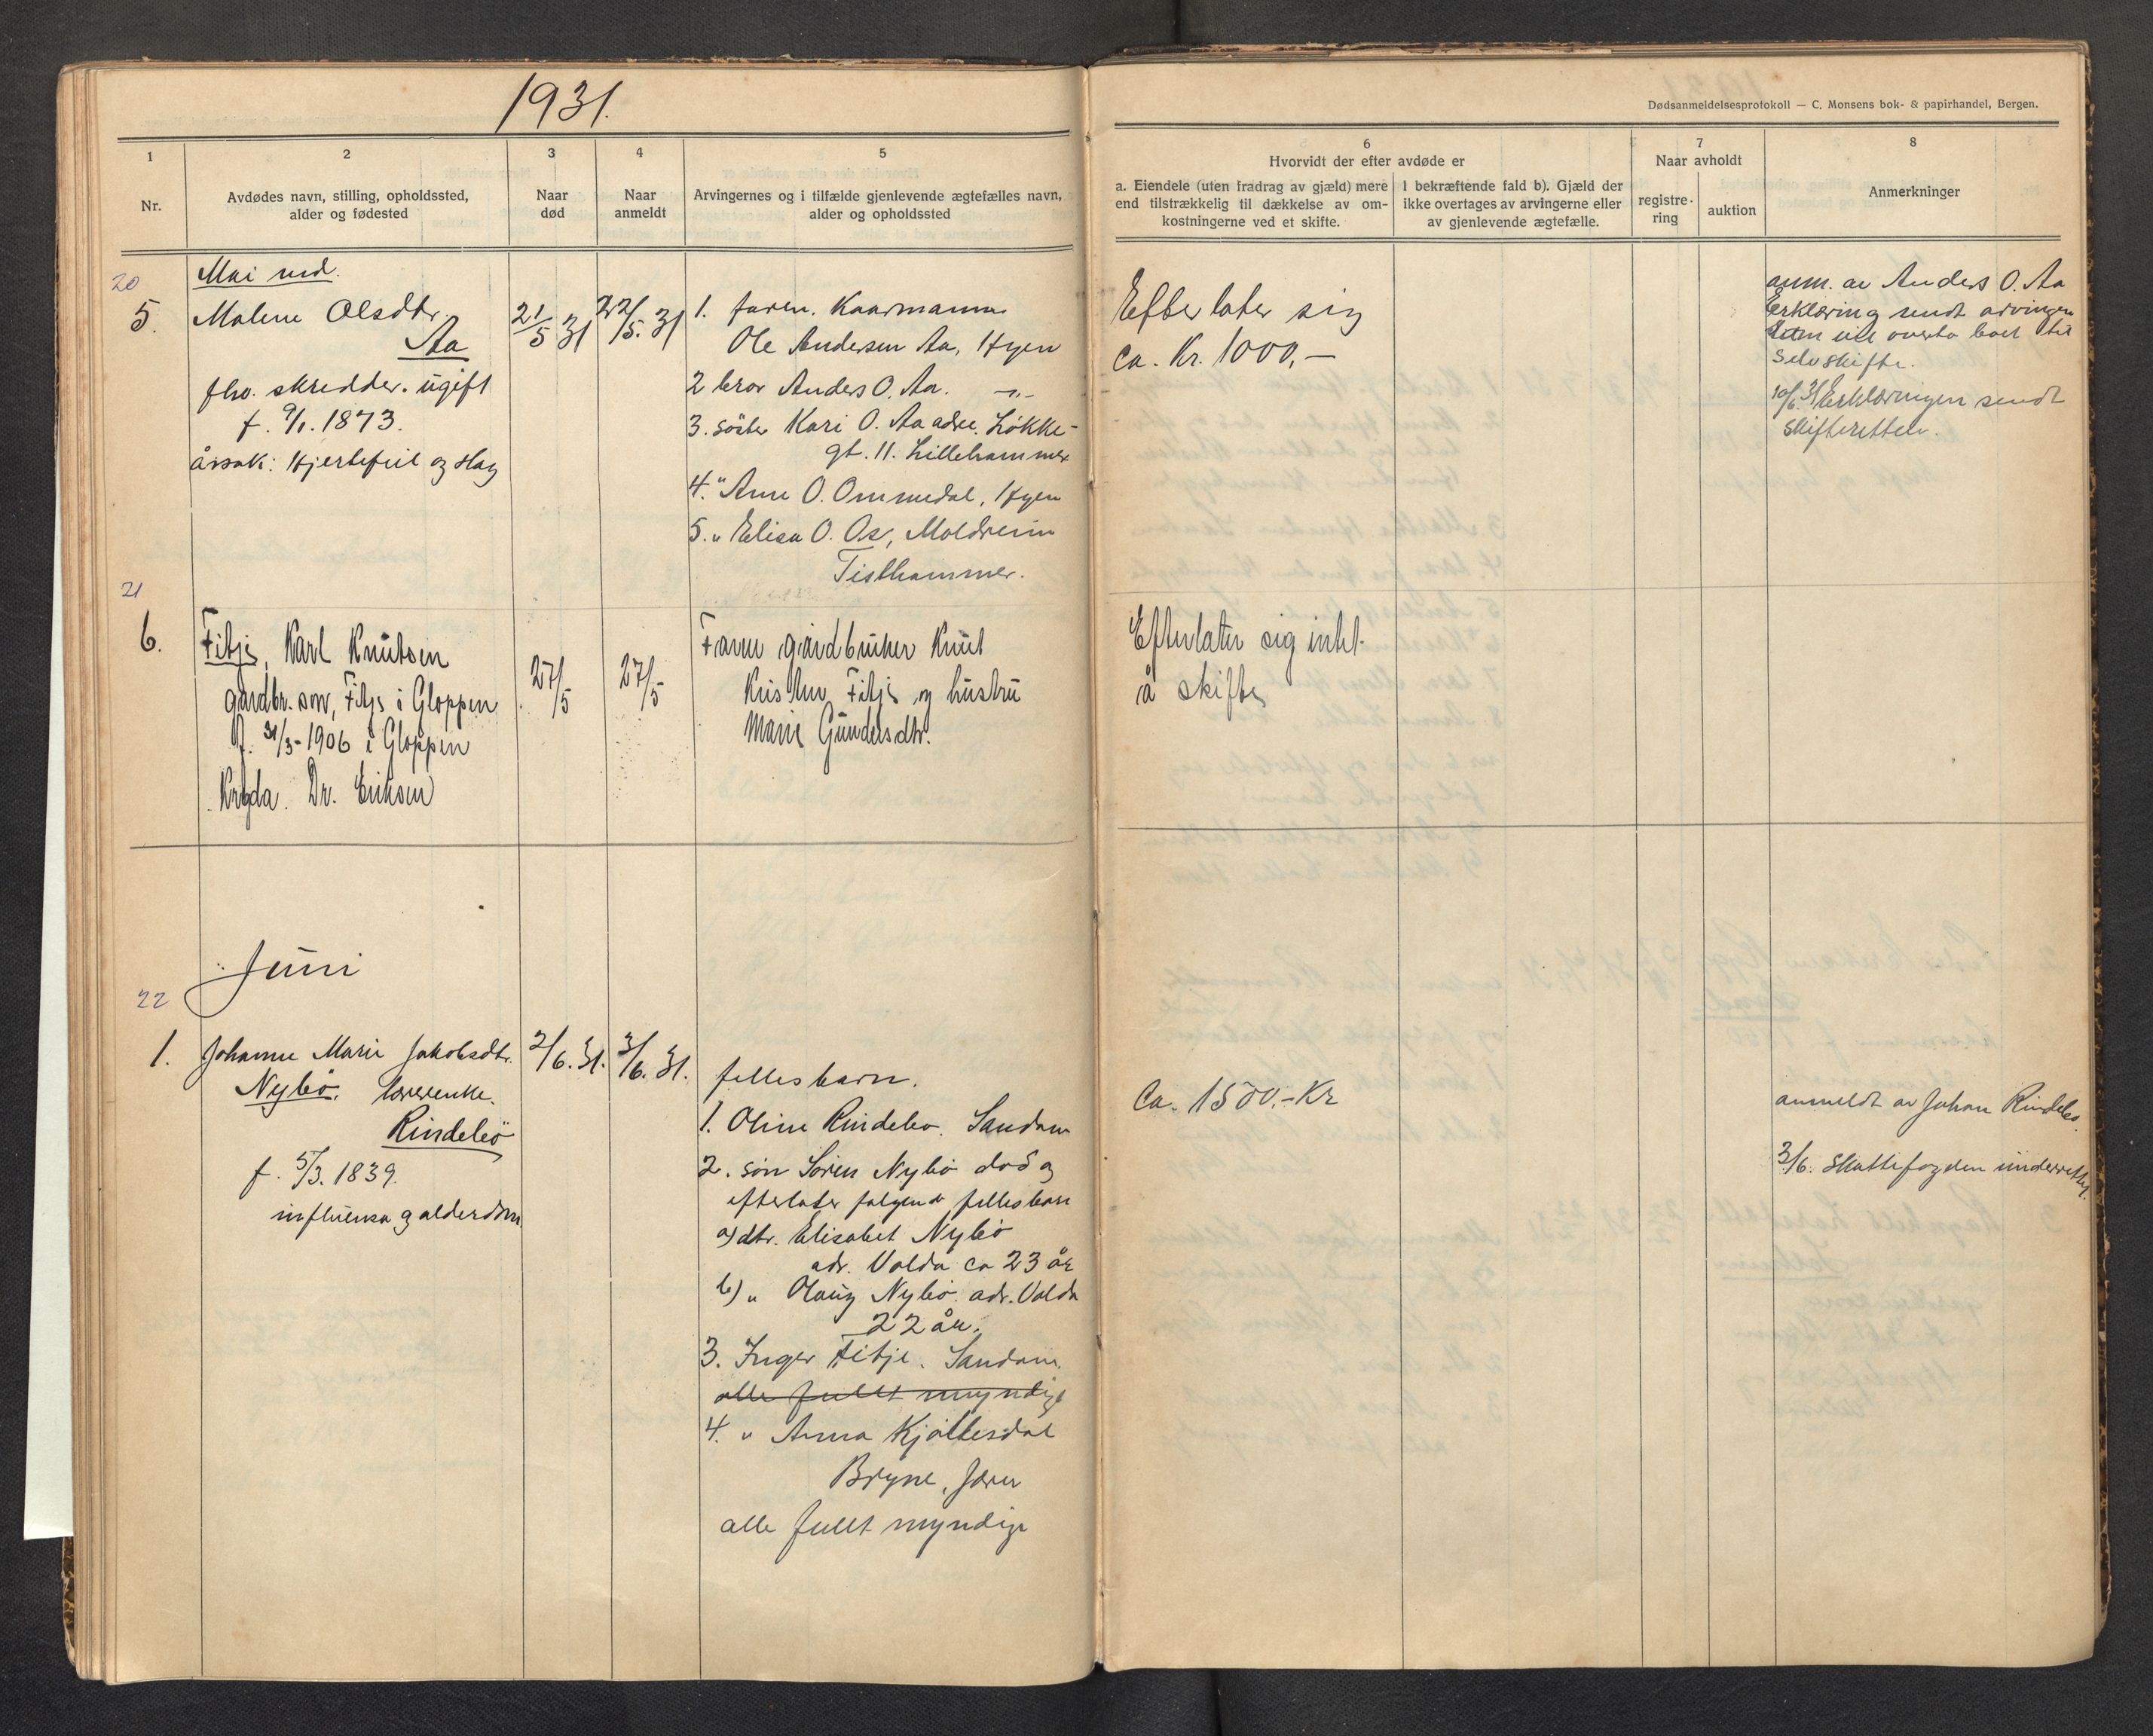 1931.
Dødsanmeldelsesprotokoll — C. Monsens bok- & papirhandel, Bergen.
1
Nr.
2
Avdødes navn, stilling, opholdssted,
alder og fødested
3
Naar
død
4
Naar
anmeldt
5
Arvingernes og i tilfælde gjenlevende ægtefælles navn,
alder og opholdssted
6
Hvorvidt der efter avdøde er
a. Eiendele (uten fradrag av gjæld) mere
end tilstrækkelig til dækkelse av om-
kostningerne ved et skifte.
I bekræftende fald b). Gjæld der
ikke overtages av arvingerne eller
av gjenlevende ægtefælle.
7
Naar avholdt
registre-
ring
auktion
8
Anmerkninger
Mai md.
20
5.
Malene Olsdtr.
Aa
fhv. skredder. ugift
f. 9/1. 1873.
årsak: Hjertefeil og slag
21/5 31
22/5. 31
1. faren. Kaarmann
Ole Andersen Aa, Hyen
2 bror Anders O. Aa. -"-
3. søster Kari O. Aa adr. Løkke-
gt. 11. Lillehammer
4. " Anne O. Ommedal, Hyen
5. " Elisa O. Os, Moldreim
Tisthammer.
Efterlater sig
ca. Kr. 1000,-
anm. av Anders O. Aa
Erklæring sendt arvingen
som vil overta boet til
selvskifte.
10/6. 31 Erklæringen sendt
skifteretten.
21
6.
Fitje, Karl Knutsen
gårdbr. søn, Fitje i Gloppen
f. 31/3-1906 i Gloppen
Dr. Eriksen
27/5
27/5
Faren gårdbruker Knut
Kristen Fitje og hustru
Marie Gundersdtr.
Efterlater sig intet
å skifte
Juni
22
1.
Johanne Marie Jakobsdtr.
Nybø. lærerenke.
Rindebø
f. 5/3. 1839.
influensa og alderdom
2/6. 31.
3/6. 31.
felles barn.
1. Oline Rindebø. Sandane
2. søn Søren Nybø død og
efterlater følgende felles barn
a) dtr. Elisabet Nybø
adr. Volda ca 23 år
b) " Olaug Nybø. adr. Volda
22 år.
3. Inger Fitje. Sandane.
alle fullt myndige
4. " Anna Kjøllesdal
Bryne, Jæren
alle fullt myndige
Ca. 1500.- Kr
anmeldt av Johan Rindebø.
3/6. Skattefogden underrettet.